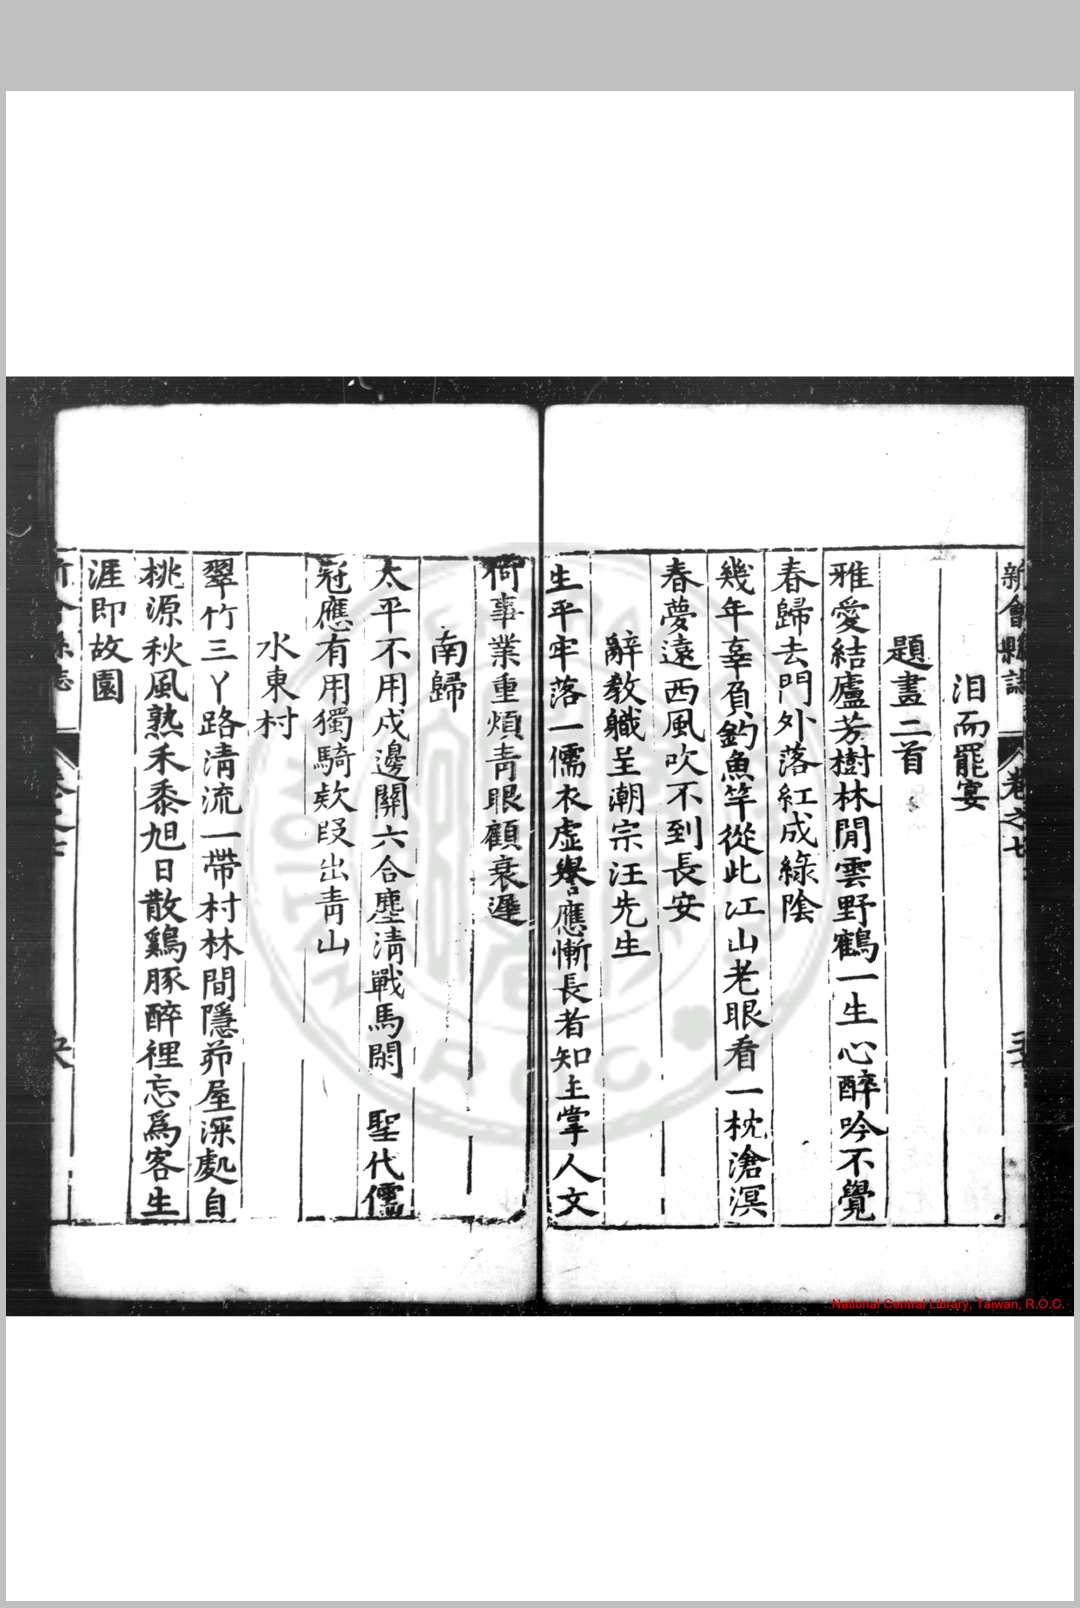 新會縣誌 卷之七
泪而罷宴
題畫二首
雅愛結廬芳樹林閒雲野鶴一生心醉吟不覺
春歸去門外落紅成綠陰
幾年辜負釣魚竿從此江山老眼看一枕滄溟
春夢遠西風吹不到長安
辭教職呈潮宗汪先生
生平牢落一儒衣虛譽應慚長者知主掌人文
倚事業重煩青眼顧衰遲
南歸
太平不用戍邊關六合塵清戰馬閑 聖代儒
冠應有用獨騎欵段出青山
水東村
翠竹三丫路清流一帶村林間隱茆屋深處自
桃源秋風熟禾黍旭日散鷄豚醉裡忘爲客生
涯即故園
National Central Library, Taiwan, R.O.C.